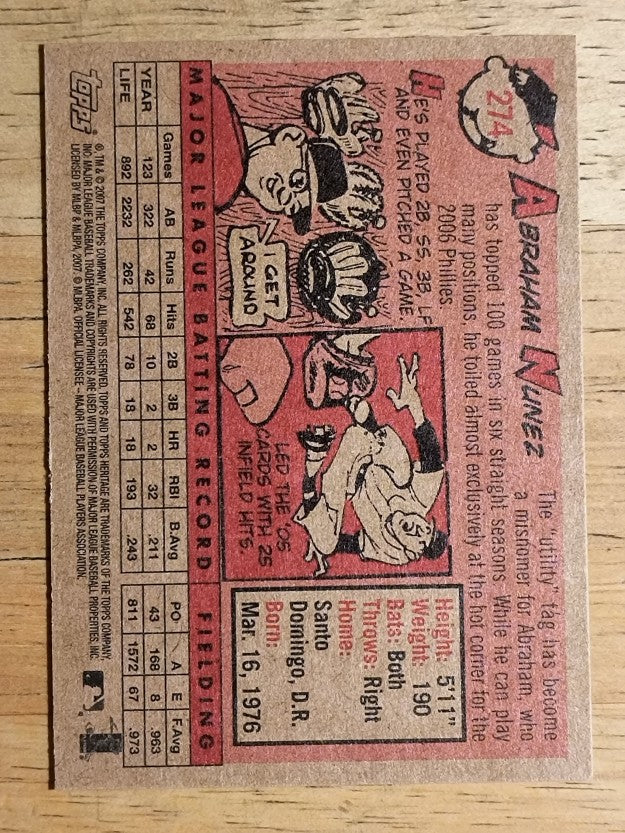 274
ABRAHAM NUNEZ
The "utility" tag has become
a misnomer for Abraham, who
has topped 100 games in six straight seasons. While he can play
many positions, he toiled almost exclusively at the hot corner for the
2006 Phillies.
HE'S PLAYED 2B, SS, 3B, LF
AND EVEN PITCHED A GAME.
I GET
AROUND
LED THE '05
CARDS WITH 25
INFIELD HITS.
Height: 5'11"
Weight: 190
Bats: Both
Throws: Right
Home:
Santo
Domingo, D.R.
Born:
Mar. 16, 1976
MAJOR LEAGUE BATTING RECORD FIELDING
Games AB Runs Hits 2B 3B HR RBI B.Avg PO A E F.Avg
YEAR 123 322 42 68 10 2 2 32 .211 43 168 8 .963
LIFE 892 2232 262 542 78 18 18 193 .243 811 1572 67 .973
Topps
® TM & © 2007 THE TOPPS COMPANY, INC. ALL RIGHTS RESERVED. TOPPS AND TOPPS HERITAGE ARE TRADEMARKS OF THE TOPPS COMPANY,
INC. MAJOR LEAGUE BASEBALL TRADEMARKS AND COPYRIGHTS ARE USED WITH PERMISSION OF MAJOR LEAGUE BASEBALL PROPERTIES, INC.
LICENSED BY MLBP & MLBPA, 2007. © MLBPA. OFFICIAL LICENSEE - MAJOR LEAGUE BASEBALL PLAYERS ASSOCIATION.